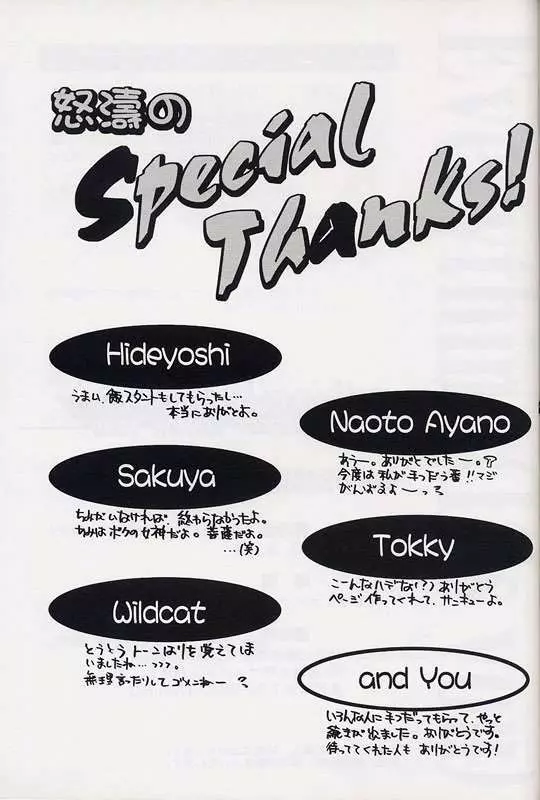 怒濤の
Special
Thanks!
Hideyoshi
うまい飯スタントもしてもらったし…
本当にありがとよ。
Sakuya
ちみがいなければ、終わらなかったよ。
ちみはボクの女神だよ。菩薩だよ。
…(笑)
Wildcat
とうとう トーンはりを覚えてしま
いましたね…
無理言ったりして ゴメンねー
Naoto Ayano
あうー。ありがとでしたー。
今度は私が手つだう番!!マジ
がんばるよー
Tokky
こーんなハデな(?)ありがとう
ページ作ってくれて、サンキューよ。
and You
いろんな人に手つだってもらって、やっと
続きが出ました。ありがとうです。
待っててくれた人も ありがとうです!